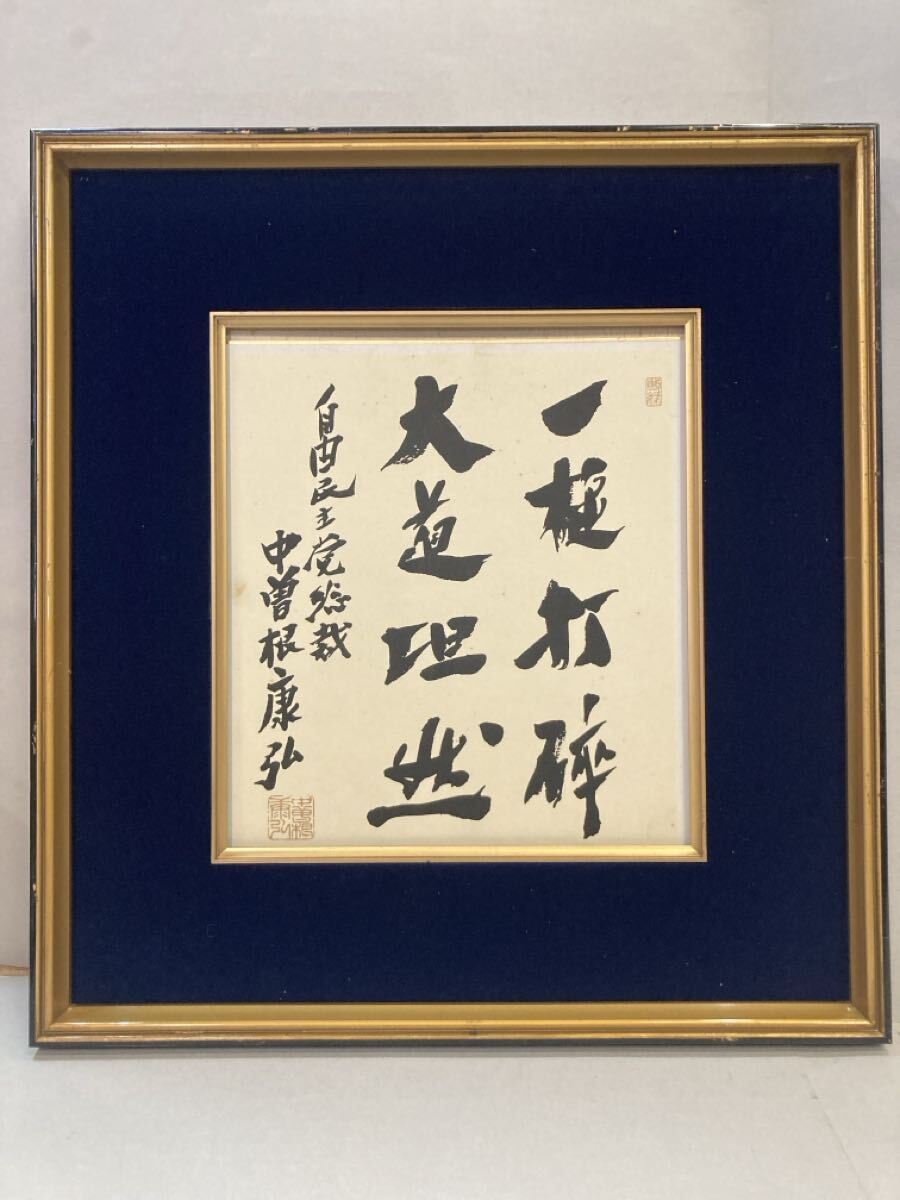 一極打砕
大道坦然
自由民主党総裁
中曽根康弘